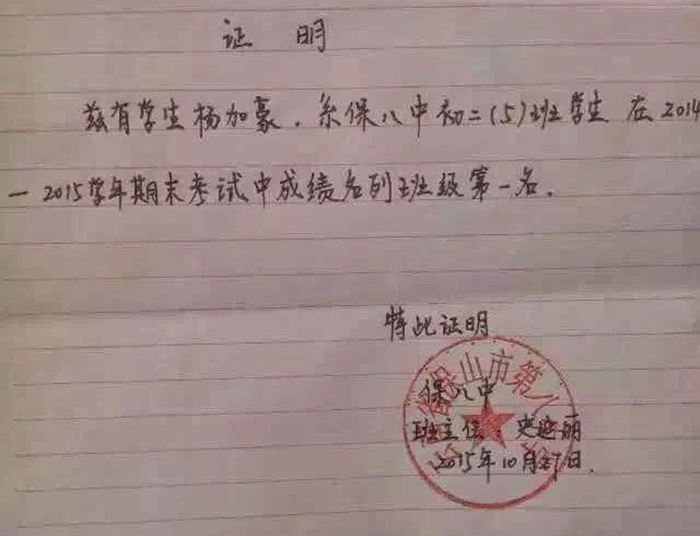 证 明
兹有学生杨加豪，系保八中初二(5)班学生 在2014
—2015学年期末考试中成绩名列班级第一名.
特此证明
保八中
班主任
2015年10月27日.
保山市第八